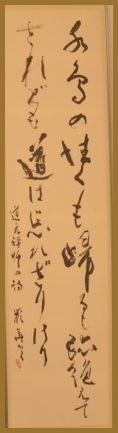 水鳥の遊くも帰るも跡絶えて
されども道は忘れざりけり
道元禅師の詩